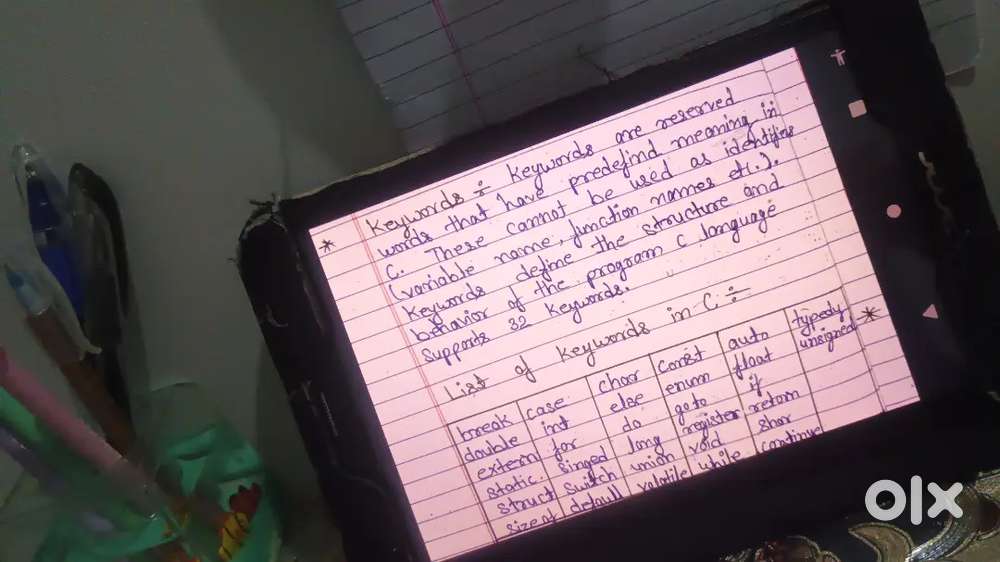 * Keywords ÷ Keywords are reserved
words that have predefind meaning in
C. These cannot be used as identifies
(variable name, function names etc.).
Keywords define the structure and
behavior of the program C language
Supports 32 Keywords.
List of Keywords in C ÷
break case char const auto typedy
double int else enum float unsigned *
extern for do goto if
static singed long register retorn
struct switch union void shor
sizeof defaull volatile while continue
OLX